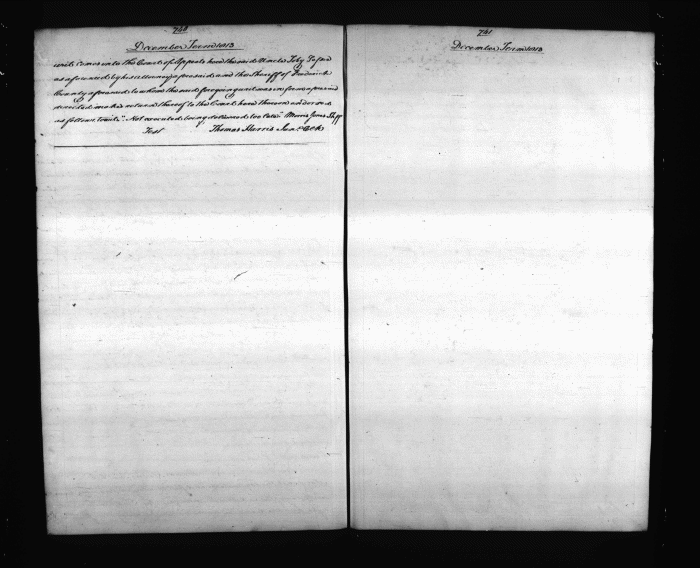 740
December Term 1813
writ comes into the Court of Appeals here the said
as aforesaid by his attorney aforesaid and the sheriff of Frederick
County aforesaid to whom the said foregoing writ was in form aforesaid
directed makes return thereof to the Court here thereon endorsed
as follows towit "Not executed being delivered too late" Morris Jones Shff
Test Thomas Harris Junr Clk
741
December Term 1813